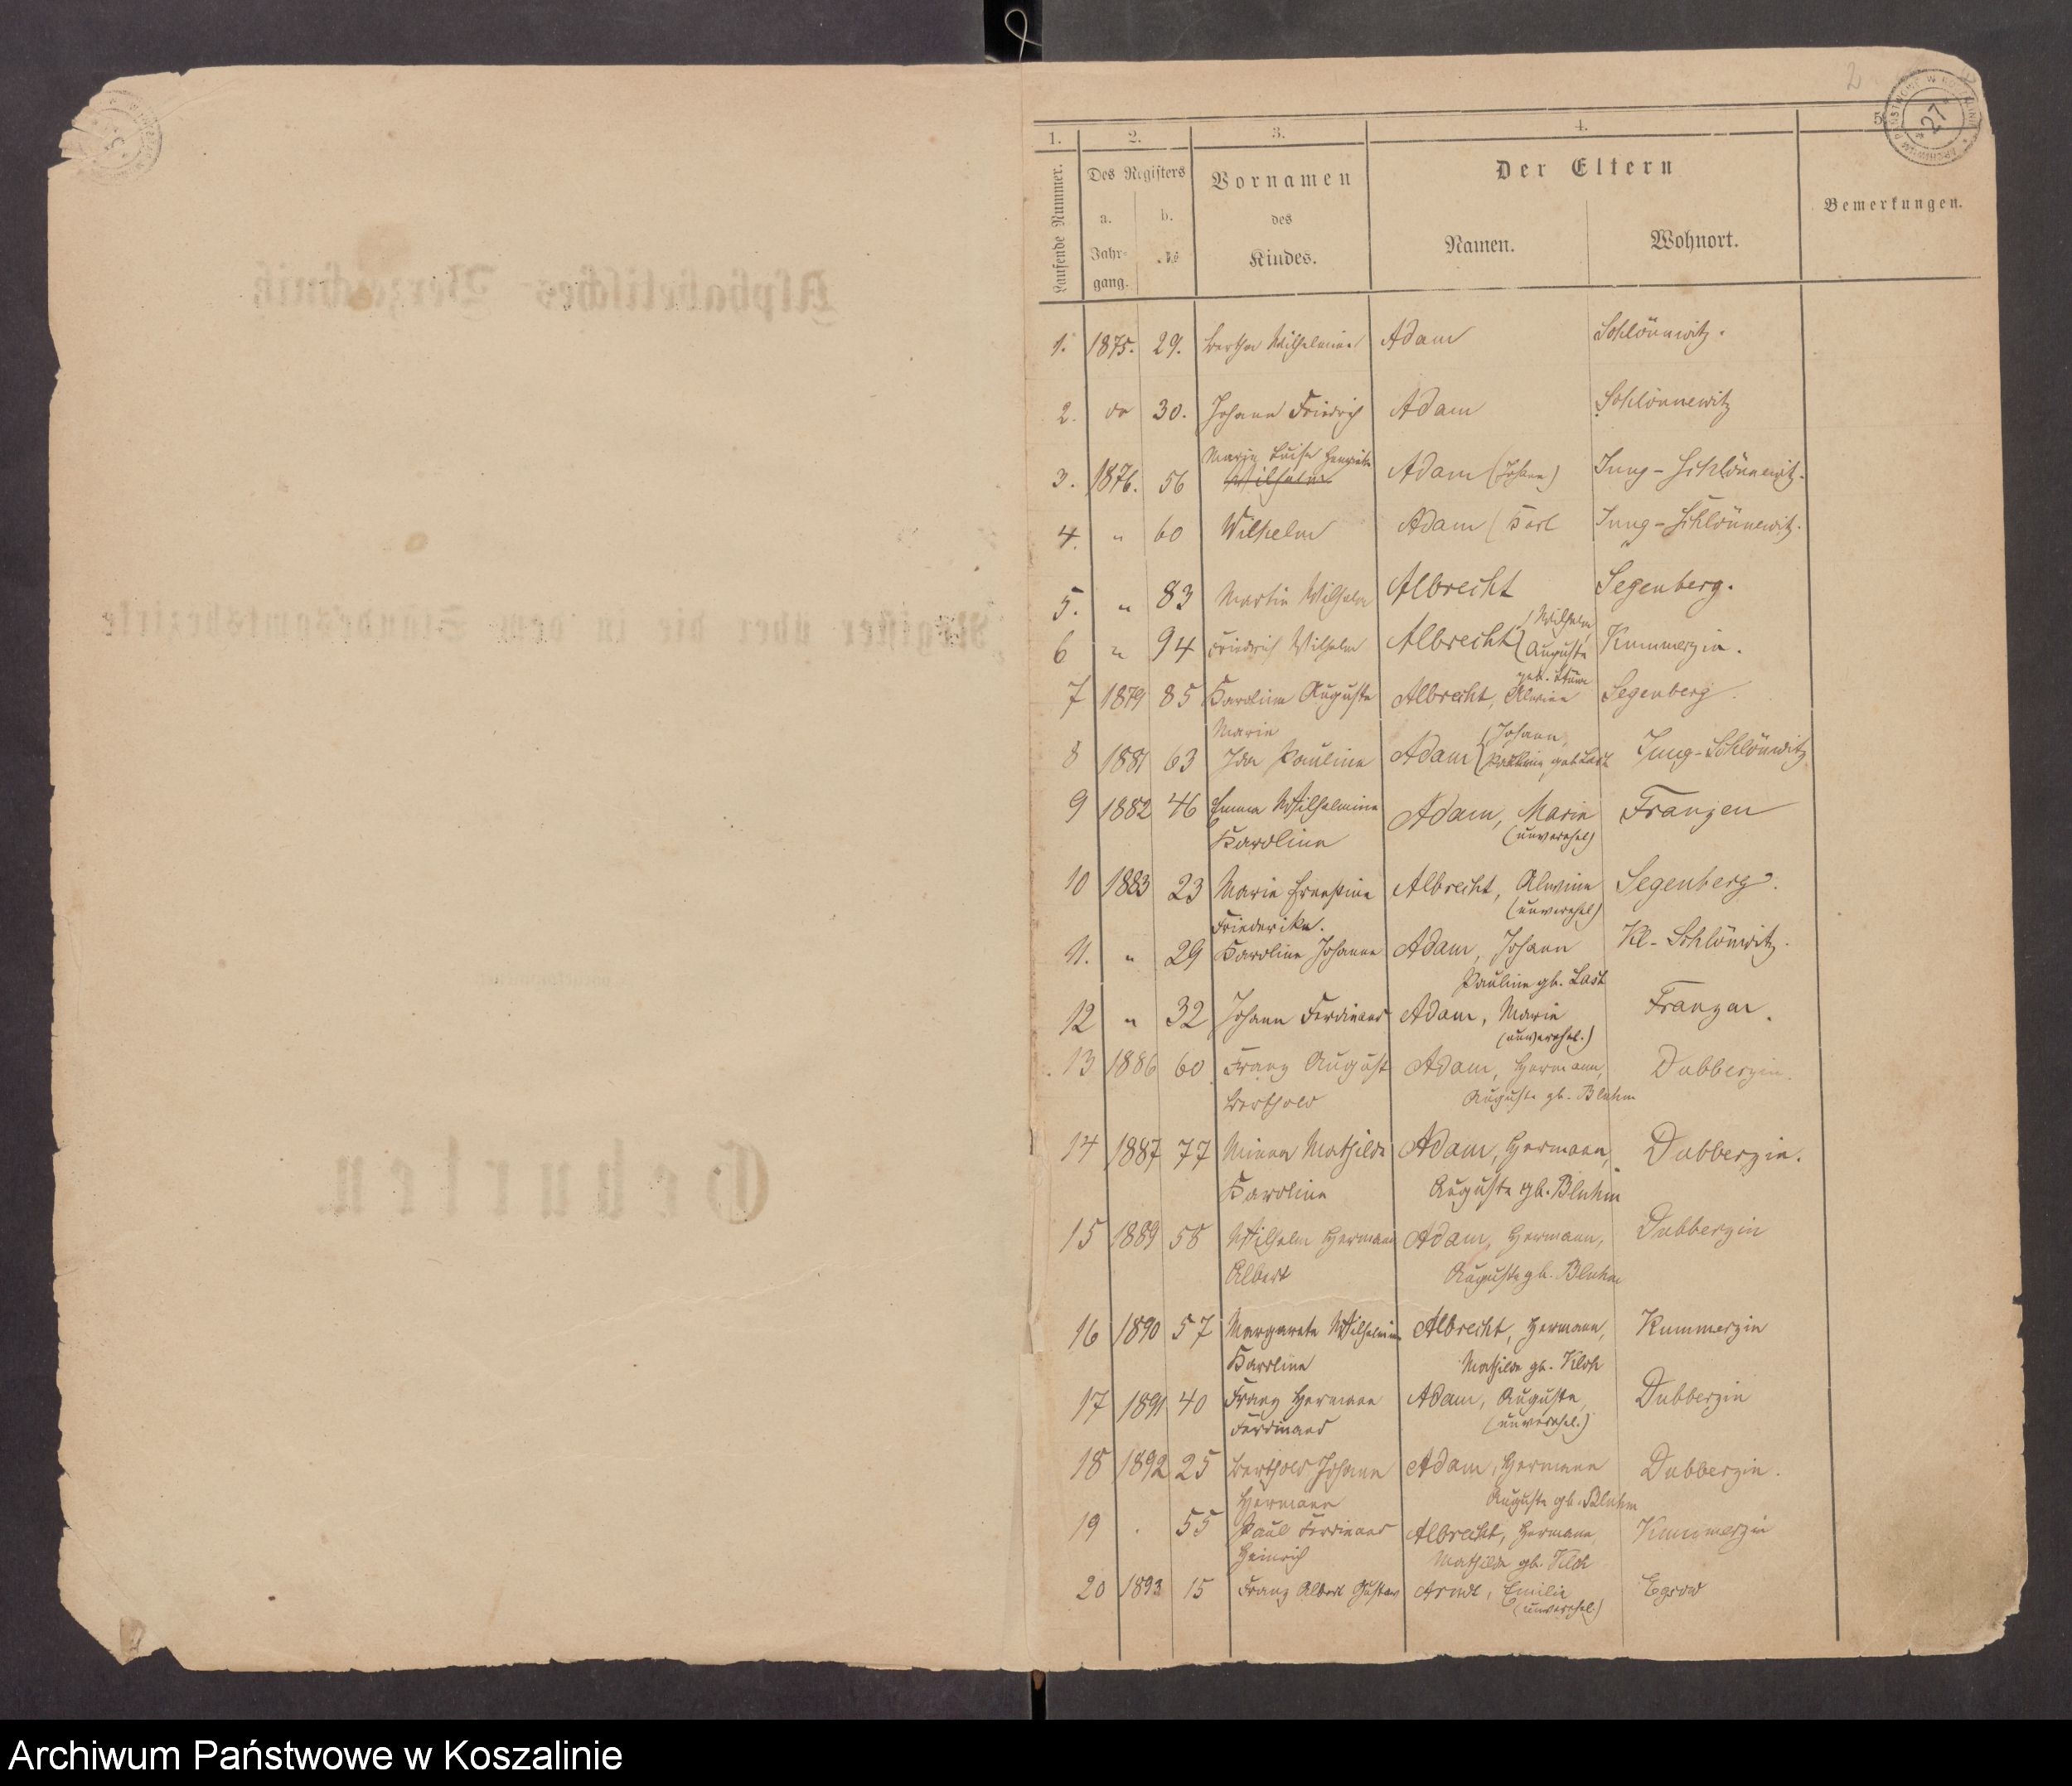 2
27
1. 2. 3. 4. 5.
Laufende Nummer.
Des Registers
a. Jahrgang.
b. №
Vornamen des Kindes.
Der Eltern
Namen.
Wohnort.
Bemerkungen.
1. 1875. 29. Bertha Wilhelmine Adam Schlönnwitz.
2. do 30. Johann Friedrich Adam Schlönnewitz
Marie Luise Henriette
3. 1876. 56 Wilhelm Adam (Johann) Jung-Schlönnewitz.
4. " 60 Wilhelm Adam (Karl Jung-Schlönnewitz.
5. " 83 Martin Wilhelm Albrecht Segenberg.
(Wilhelm
6 " 94 Friedrich Wilhelm Albrecht (Auguste Kummerzin.
geb.
7 1879 85 Karoline Auguste Albrecht, Alwine Segenberg.
Marie (Johann,
8 1881 63 Ida Pauline Adam (Pauline geb Last Jung-Schlönwitz
9 1882 46 Emma Wilhelmine Adam, Marie Franzen
Karoline (unverehel)
10 1883 23 Marie Ernestine Albrecht, Alwine Segenberg.
Friederike. (unverehel)
11. " 29 Karoline Johanne Adam, Johann Kl-Schlönwitz.
Pauline gb. Last
12 " 32 Johann Ferdinand Adam, Marie Franzen.
(unverehel.)
13 1886 60 Franz August Adam, Hermann, Dubberzin.
Berthold Auguste gb. Bluhm
14 1887 77 Minna Mathilde Adam, Hermann, Dubberzin.
Karoline Auguste gb. Bluhm
15 1889 58 Wilhelm Hermann Adam, Hermann, Dubberzin
Albert Auguste gb. Bluhm
16 1890 57 Margarete Wilhelmine Albrecht, Hermann, Kummerzin
Karoline Mathilde gb. Kloh
17 1891 40 Franz Hermann Adam, Auguste, Dubberzin
Ferdinand (unverehel.)
18 1892 25 Berthold Johann Adam, Hermann Dubberzin.
Hermann Auguste gb. Bluhm
19 . 55 Paul Ferdinand Albrecht, Hermann Kummerzin
Heinrich Mathilde gb. Kloh
20 1893 15 Franz Albert Gustav Arndt, Emilie Egsow
(unverehel)
Archiwum Państwowe w Koszalinie